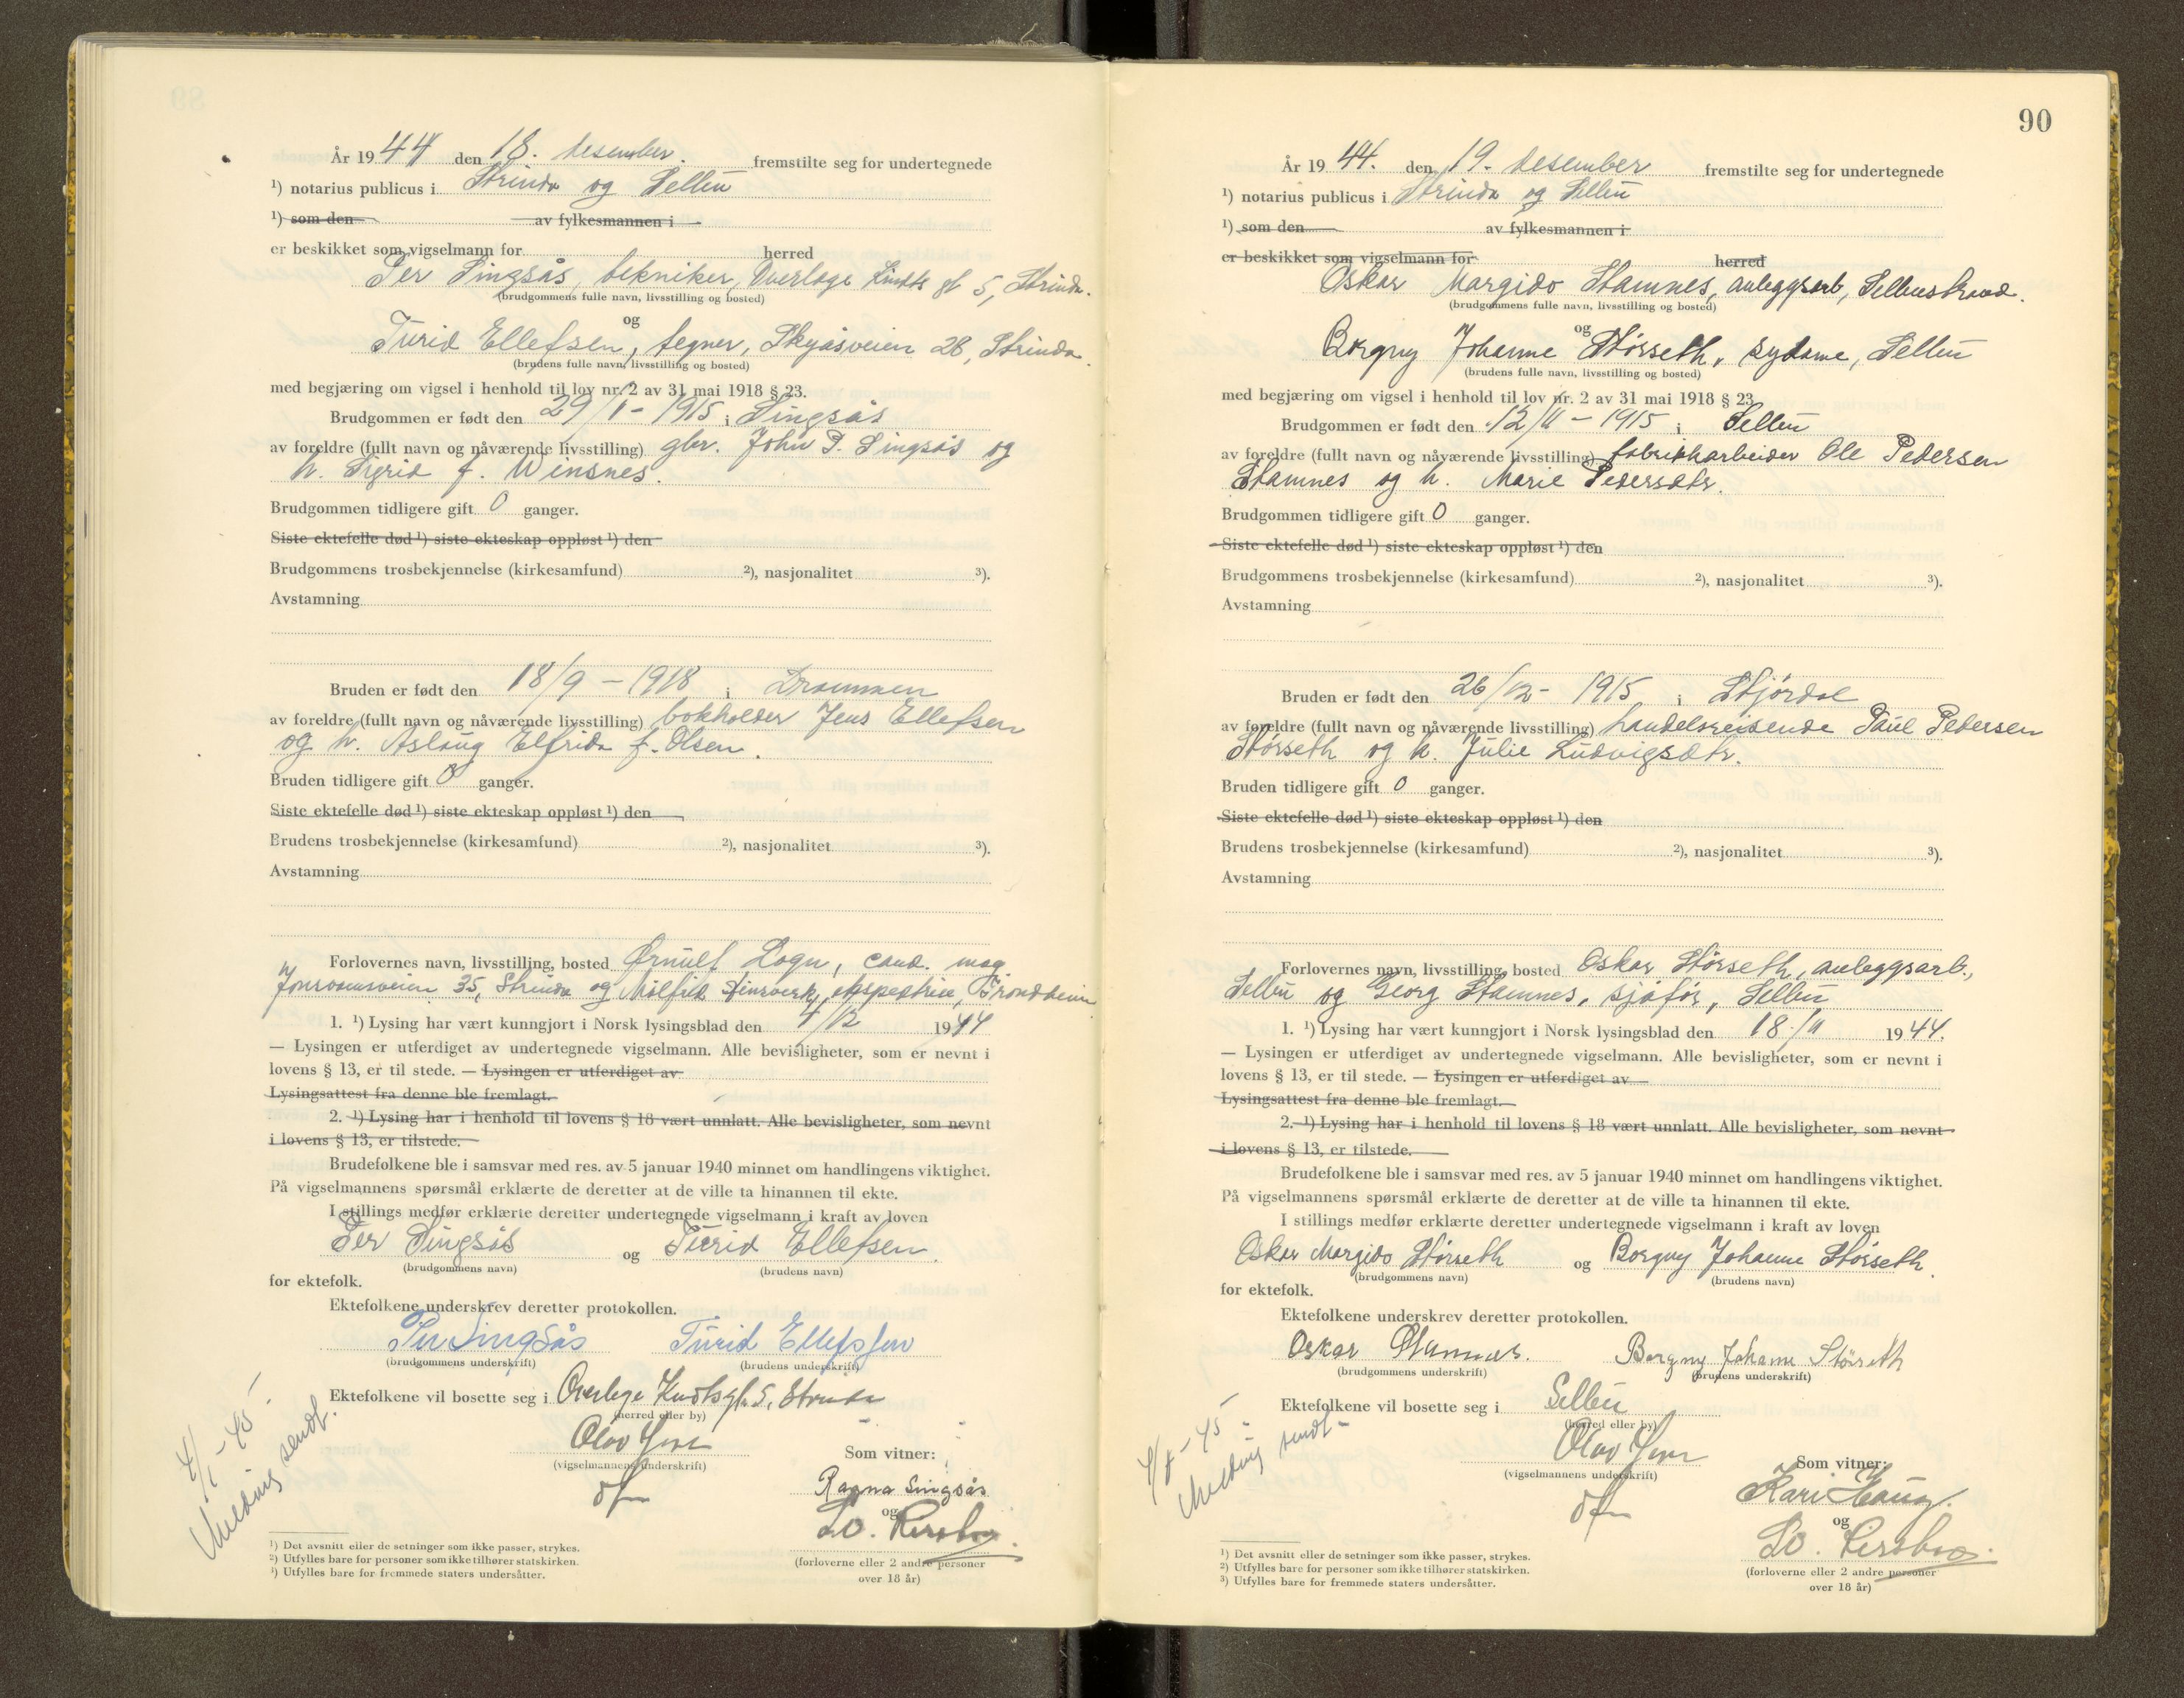 År 1944 den 18. desember. fremstilte seg for undertegnede
¹) notarius publicus i Strinda og Selbu
¹) som den av fylkesmannen i
er beskikket som vigselmann for herred
Per Singsås, tekniker, Overlege Kindts gt 5, Strinda.
(brudgommens fulle navn, livsstilling og bosted)
og
Turid Ellefsen, tegner, Skyåsveien 26, Strinda.
(brudens fulle navn, livsstilling og bosted)
med begjæring om vigsel i henhold til lov nr. 2 av 31 mai 1918 § 23.
Brudgommen er født den 29/1 - 1915 i Singsås
av foreldre (fullt navn og nåværende livsstilling) gbr. John P. Singsås og
h. Sigrid f. Winsnes.
Brudgommen tidligere gift 0 ganger.
Siste ektefelle død ¹) siste ekteskap oppløst ¹) den
Brudgommens trosbekjennelse (kirkesamfund) ²), nasjonalitet ³).
Avstamning
Bruden er født den 18/9 - 1918 i Drammen
av foreldre (fullt navn og nåværende livsstilling) bokholder Jens Ellefsen
og h. Aslaug Elfrida f. Olsen.
Bruden tidligere gift 0 ganger.
Siste ektefelle død ¹) siste ekteskap oppløst ¹) den
Brudens trosbekjennelse (kirkesamfund) ²), nasjonalitet ³).
Avstamning
Forlovernes navn, livsstilling, bosted Ørnulf Logn, cand. mag
Jonsvannsveien 35, Strinda og ekspeditrise, Trondheim
1. ¹) Lysing har vært kunngjort i Norsk lysingsblad den 4/12 1944
— Lysingen er utferdiget av undertegnede vigselmann. Alle bevisligheter, som er nevnt i
lovens § 13, er til stede. — Lysingen er utferdiget av
Lysingsattest fra denne ble fremlagt.
2. ¹) Lysing har i henhold til lovens § 18 vært unnlatt. Alle bevisligheter, som nevnt
i lovens § 13, er tilstede.
Brudefolkene ble i samsvar med res. av 5 januar 1940 minnet om handlingens viktighet.
På vigselmannens spørsmål erklærte de deretter at de ville ta hinannen til ekte.
I stillings medfør erklærte deretter undertegnede vigselmann i kraft av loven
Per Singsås og Turid Ellefsen.
(brudgommens navn) (brudens navn)
for ektefolk.
Ektefolkene underskrev deretter protokollen.
Per Singsås Turid Ellefsen
(brudgommens underskrift) (brudens underskrift)
Ektefolkene vil bosette seg i Overlege Kindtsgt. 5, Strinda
(herred eller by)
Olav
(vigselmannens underskrift)
Som vitner:
Ragna Singsås
og
(forloverne eller 2 andre personer
over 18 år)
4/1 - 45 -
Melding sendt.
¹) Det avsnitt eller de setninger som ikke passer, strykes.
²) Utfylles bare for personer som ikke tilhører statskirken.
³) Utfylles bare for fremmede staters undersåtter.
90
År 1944. den 19. desember fremstilte seg for undertegnede
¹) notarius publicus i Strinda og Selbu
¹) som den av fylkesmannen i
er beskikket som vigselmann for herred
Oskar Margido Stamnes, anleggsarb, Selbustrand.
(brudgommens fulle navn, livsstilling og bosted)
og
Borgny Johanne Størseth, sydame, Selbu
(brudens fulle navn, livsstilling og bosted)
med begjæring om vigsel i henhold til lov nr. 2 av 31 mai 1918 § 23.
Brudgommen er født den 12/11 - 1915 i Selbu
av foreldre (fullt navn og nåværende livsstilling) fabrikkarbeider Ole Pedersen
Stamnes og h. Marie Pedersdtr.
Brudgommen tidligere gift 0 ganger.
Siste ektefelle død ¹) siste ekteskap oppløst ¹) den
Brudgommens trosbekjennelse (kirkesamfund) ²), nasjonalitet ³).
Avstamning
Bruden er født den 26/12 - 1915 i Stjørdal
av foreldre (fullt navn og nåværende livsstilling) handelsreisende Paul Pedersen
Størseth og h. Julie Ludvigsdtr.
Bruden tidligere gift 0 ganger.
Siste ektefelle død ¹) siste ekteskap oppløst ¹) den
Brudens trosbekjennelse (kirkesamfund) ²), nasjonalitet ³).
Avstamning
Forlovernes navn, livsstilling, bosted Oskar Størseth, anleggsarb.,
Selbu og Georg Stamnes, sjåfør, Selbu
1. ¹) Lysing har vært kunngjort i Norsk lysingsblad den 18/11 1944.
— Lysingen er utferdiget av undertegnede vigselmann. Alle bevisligheter, som er nevnt i
lovens § 13, er til stede. — Lysingen er utferdiget av
Lysingsattest fra denne ble fremlagt.
2. ¹) Lysing har i henhold til lovens § 18 vært unnlatt. Alle bevisligheter, som nevnt
i lovens § 13, er tilstede.
Brudefolkene ble i samsvar med res. av 5 januar 1940 minnet om handlingens viktighet.
På vigselmannens spørsmål erklærte de deretter at de ville ta hinannen til ekte.
I stillings medfør erklærte deretter undertegnede vigselmann i kraft av loven
Oskar Margido Størseth og Borgny Johanne Størseth.
(brudgommens navn) (brudens navn)
for ektefolk.
Ektefolkene underskrev deretter protokollen.
Oskar Stamnes. Borgny Johanne Størseth
(brudgommens underskrift) (brudens underskrift)
Ektefolkene vil bosette seg i Selbu
(herred eller by)
Olav
(vigselmannens underskrift)
Som vitner:
Kari Haug.
og
(forloverne eller 2 andre personer
over 18 år)
Melding sendt -
¹) Det avsnitt eller de setninger som ikke passer, strykes.
²) Utfylles bare for personer som ikke tilhører statskirken.
³) Utfylles bare for fremmede staters undersåtter.